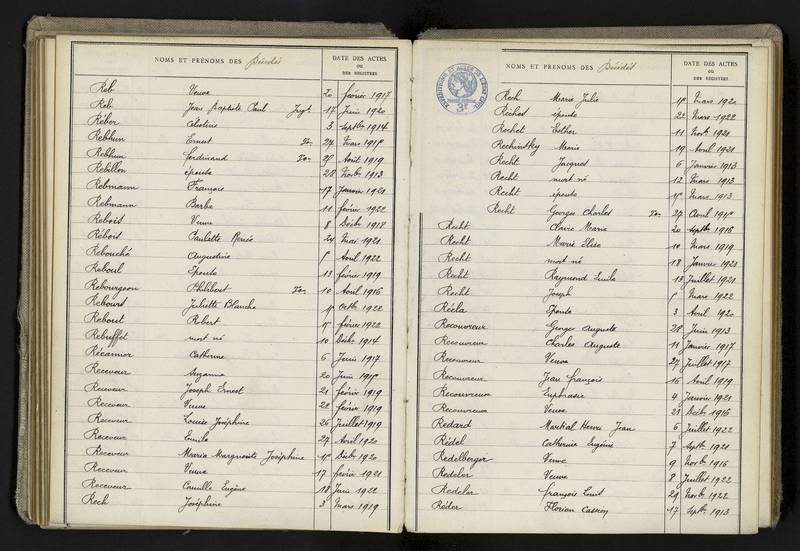 NOMS ET PRÉNOMS DES Décédés
DATE DES ACTES
OU
DES REGISTRES
Reb Veuve 20 février 1917
Reb Jean Baptiste Paul Jugt 17 Juin 1920
Réber Célestine 3 Septbre 1914
Rebhun Ernest Don 24 Mars
Rebhun Ferdinand Don Août 1919
Rebillon épouse 28 Novbre 1913
Rebmann François 17 Janvier 1921
Rebmann Barbe 11 février 1922
Rebois Veuve 8 Décbre 1918
Rébois Paulette Renée 24 Mai 1921
Rebouché Augustine Avril 1922
Reboul Epouse 13 février 1919
Rebourgeon Philibert Don 10 Avril 1916
Rebourd Juliette Blanche Octbre 1922
Rebout Robert février 1922
Rebuffet mort né 10 Décbre 1914
Récamier Catherine 6 Juin 1917
Receveur Suzanne 20 Juin
Receveur Joseph Ernest 21 février 1919
Receveur Veuve 22 février 1919
Receveur Louise Joséphine 26 Juillet 1919
Receveur Emile 27 Avril 1920
Receveur Maria Marguerite Joséphine Décbre 1920
Receveur Veuve 17 février 1921
Receveur Camille Eugène 18 Juin 1922
Rech Joséphine 3 Mars 1919
NOMS ET PRÉNOMS DES Décédés
DATE DES ACTES
OU
DES REGISTRES
3F
Rech Marie Julie Mars 1920
Réchod épouse 22 Mars 1922
Rechet Esther 11 Novbre 1920
Rechinitky Marie 19 Avril 1921
Recht Jacques 6 Janvier 1913
Recht mort né 12 Mars 1913
Recht épouse Mars 1913
Recht Georges Charles Don 27 Avril
Recht Marie 20 Septbre 1916
Recht Marie Elise 10 Mars 1919
Recht mort né 18 Janvier 1921
Recht Raymond Emile 18 Juillet 1921
Recht Joseph Mars 1922
Récla Epouse 3 Avril 1920
Recouvreur Georges Auguste 28 Juin 1913
Recouvreur Charles Auguste 11 Janvier 1917
Recouvreur Veuve 27 Juillet 1917
Recouvreur Jean François 16 Avril 1919
Recouvreur Euphrasie 4 Janvier 1921
Recouvreux Veuve 21 Décbre 1916
Redard Martial Henri Jean 6 Juillet 1922
Rédel Catherine Eugénie 7 Septbre 1921
Redelberger Veuve 9 Novbre 1916
Redeler Veuve 8 Juillet 1922
Redeler François Louis 29 Novbre 1922
Réder Florian 17 Septbre 1913